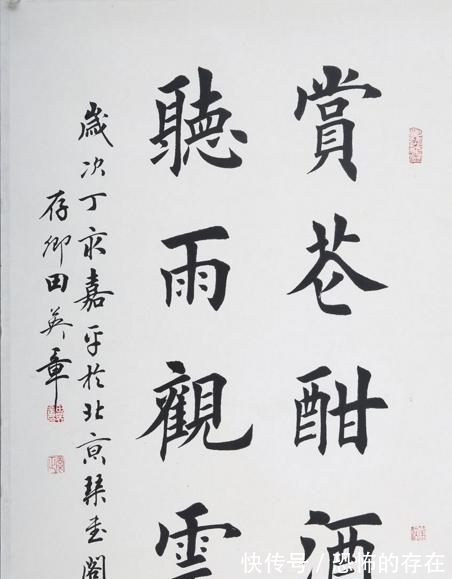 賞花酣酒
聽雨觀雲
歲次丁亥嘉平於北京閣
存卿田英章
快传号 / 恐怖的存在